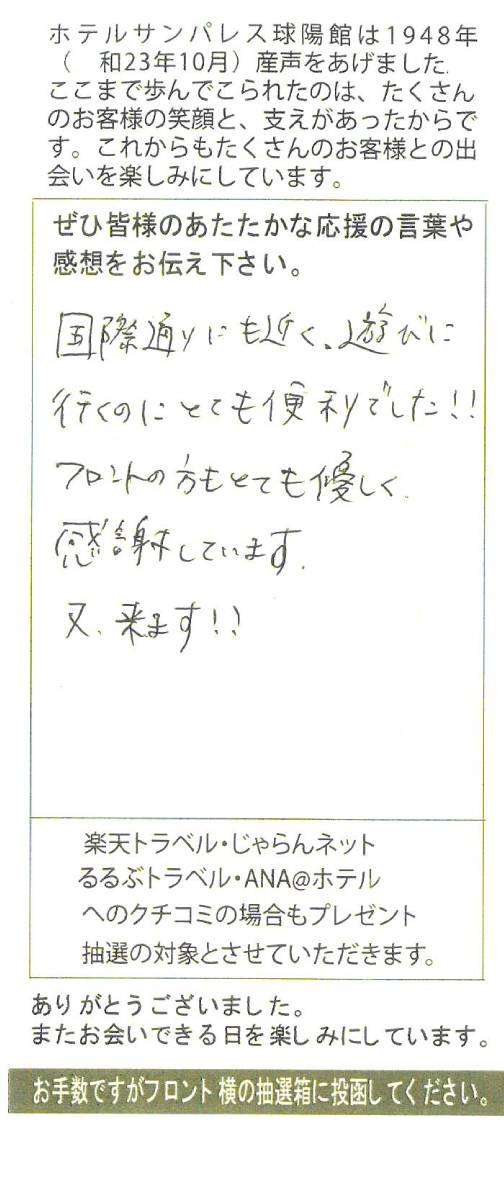 ホテルサンパレス球陽館は1948年
(　和23年10月）産声をあげました.
ここまで歩んでこられたのは、たくさん
のお客様の笑顔と、支えがあったからで
す。これからもたくさんのお客様との出
会いを楽しみにしています。
ぜひ皆様のあたたかな応援の言葉や
感想をお伝え下さい。
国際通りにも近く、遊びに
行くのにとても便利でした!!
フロントの方もとても優しく、
感謝しています.
又、来ます!!
楽天トラベル・じゃらんネット
るるぶトラベル・ANA@ホテル
へのクチコミの場合もプレゼント
抽選の対象とさせていただきます。
ありがとうございました。
またお会いできる日を楽しみにしています。
お手数ですがフロント横の抽選箱に投函してください。